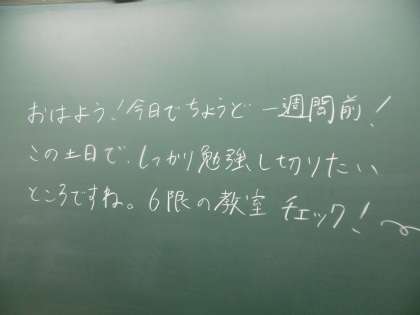 おはよう!今日でちょうど一週間前!
この土日で、しっかり勉強し切りたい
ところですね。6限の教室チェック!